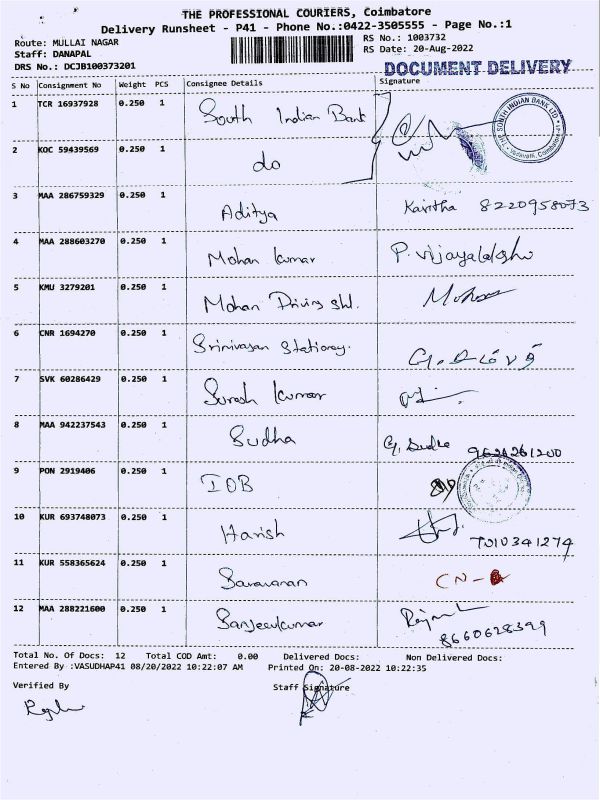 THE PROFESSIONAL COURIERS, Coimbatore
Delivery Runsheet - P41 - Phone No.:0422-3505555 - Page No.:1
Route: MULLAI NAGAR
Staff: DANAPAL
DRS No.: DCJB100373201
RS No.: 1003732
RS Date: 20-Aug-2022
DOCUMENT DELIVERY
S No Consignment No Weight PCS Consignee Details Signature
1 TCR 16937928 0.250 1 South Indian Bank
THE SOUTH INDIAN BANK LTD
2 KOC 59439569 0.250 1 do
3 MAA 286759329 0.250 1 Aditya Kavitha 8220958073
4 MAA 288603270 0.250 1 Mohan kumar P. Vijayalakshmi
5 KMU 3279201 0.250 1 Mohan Driving shl. Mohan
6 CNR 1694270 0.250 1 Srinivasan Stationary.
7 SVK 60286429 0.250 1 Suresh kumar
8 MAA 942237543 0.250 1 Sudha G. Sudha 9626261200
9 PON 2919406 0.250 1 IOB
10 KUR 693748073 0.250 1 Harish 7010341274
11 KUR 558365624 0.250 1 Saravanan CN-
12 MAA 288221600 0.250 1 Sanjeevkumar 8660628399
Total No. Of Docs: 12 Total COD Amt: 0.00 Delivered Docs: Non Delivered Docs:
Entered By :VASUDHAP41 08/20/2022 10:22:07 AM Printed On: 20-08-2022 10:22:35
Verified By Staff Signature